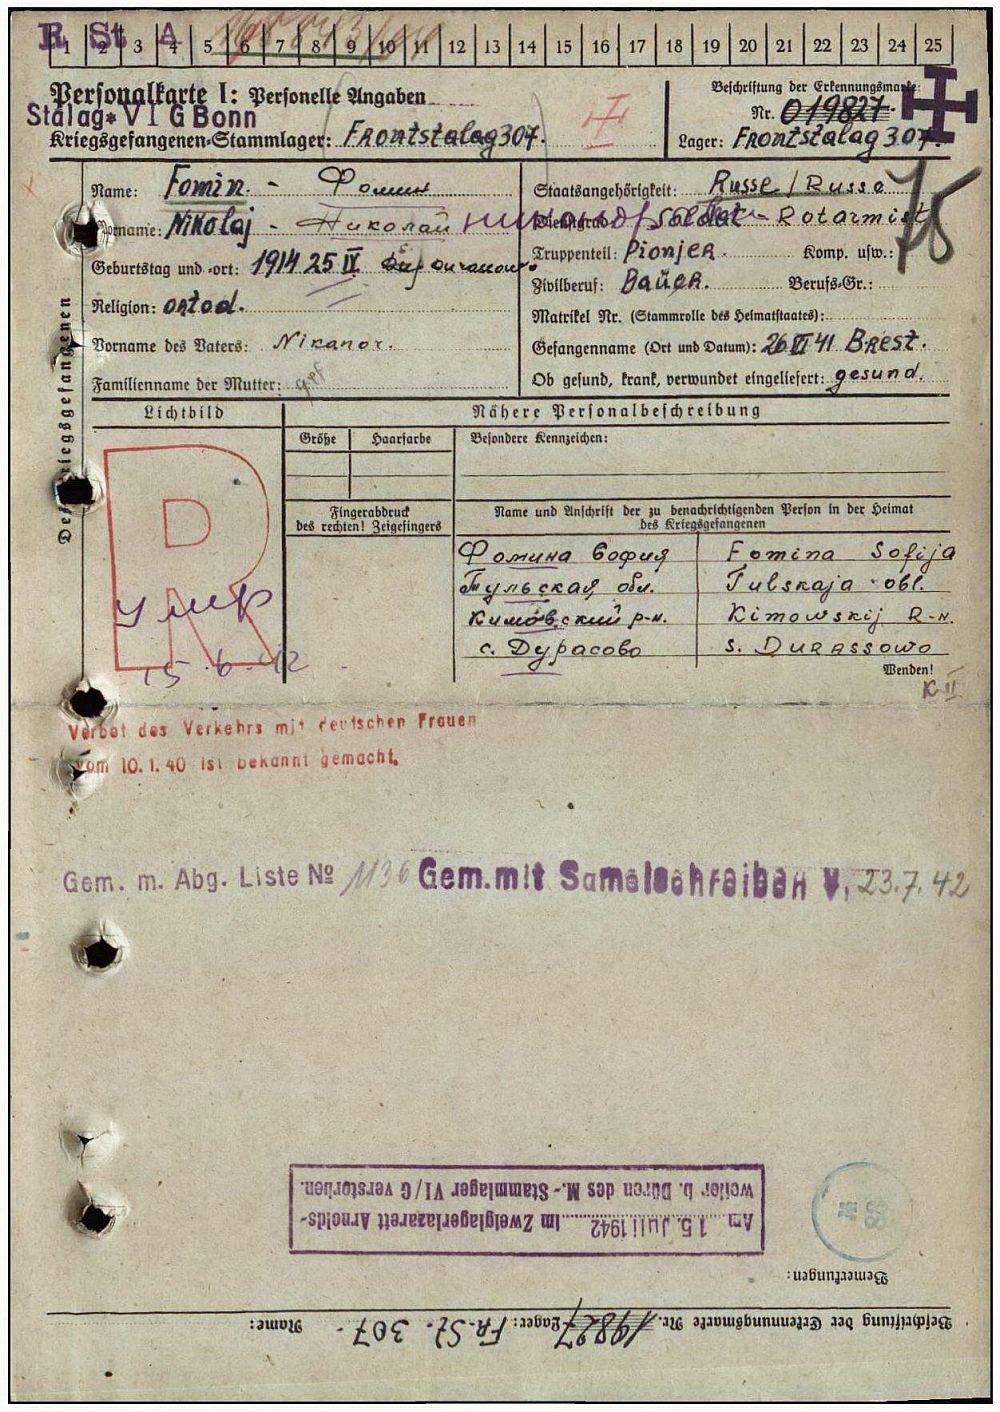 R St A
1 2 3 4 5 6 7 8 9 10 11 12 13 14 15 16 17 18 19 20 21 22 23 24 25
Personalkarte I: Personelle Angaben
Stalag VI G Bonn
Kriegsgefangenen-Stammlager: Frontstalag 307.
Beschriftung der Erkennungsmarke:
Nr. 019827.
Lager: Frontstalag 307.
Name: Fomin. - Фомин
Vorname: Nikolaj - Николай Николай
Geburtstag und -ort: 1914 25 IV
Religion: ortod.
Vorname des Vaters: Nikanor.
Familienname der Mutter:
Staatsangehörigkeit: Russe / Russe
Dienstgrad: Soldat - Rotarmist
Truppenteil: Pionjer. Komp. usw.:
Zivilberuf: Bauer. Berufs-Gr.:
Matrikel Nr. (Stammrolle des Heimatstaates):
Gefangenname (Ort und Datum): 26 VI 41 Brest.
Ob gesund, krank, verwundet eingeliefert: gesund.
Des Kriegsgefangenen
Lichtbild
Nähere Personalbeschreibung
Größe Haarfarbe Besondere Kennzeichen:
Fingerabdruck
des rechten! Zeigefingers
Name und Anschrift der zu benachrichtigenden Person in der Heimat
des Kriegsgefangenen
Фомина София Fomina Sofija
Тульская обл. Tulskaja obl.
Кимовский р-н. Kimowskij R-n.
с. Дурасово s. Durassowo
R
умр
15.6.42
Wenden!
K II
Verbot des Verkehrs mit deutschen Frauen
vom 10.1.40 ist bekannt gemacht.
Gem. m. Abg. Liste № 1136 Gem. mit Samelschreiben V. 23.7.42
Am 15. Juli 1942 im Zweiglagerlazarett Arnolds-
weiler b. Düren des M.-Stammlager VI/G verstorben.
Bemerkungen:
Beschriftung der Erkennungsmarke Nr. 19827 Lager: Fr. St. 307. Name: